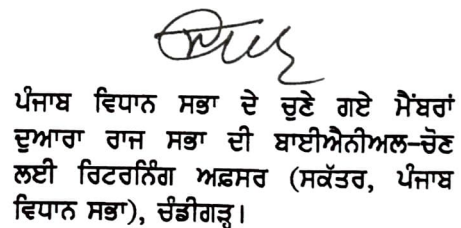 ਪੰਜਾਬ ਵਿਧਾਨ ਸਭਾ ਦੇ ਚੁਣੇ ਗਏ ਮੈਂਬਰਾਂ
ਦੁਆਰਾ ਰਾਜ ਸਭਾ ਦੀ ਬਾਈਐਨੀਅਲ-ਚੋਣ
ਲਈ ਰਿਟਰਨਿੰਗ ਅਫ਼ਸਰ (ਸਕੱਤਰ, ਪੰਜਾਬ
ਵਿਧਾਨ ਸਭਾ), ਚੰਡੀਗੜ੍ਹ।